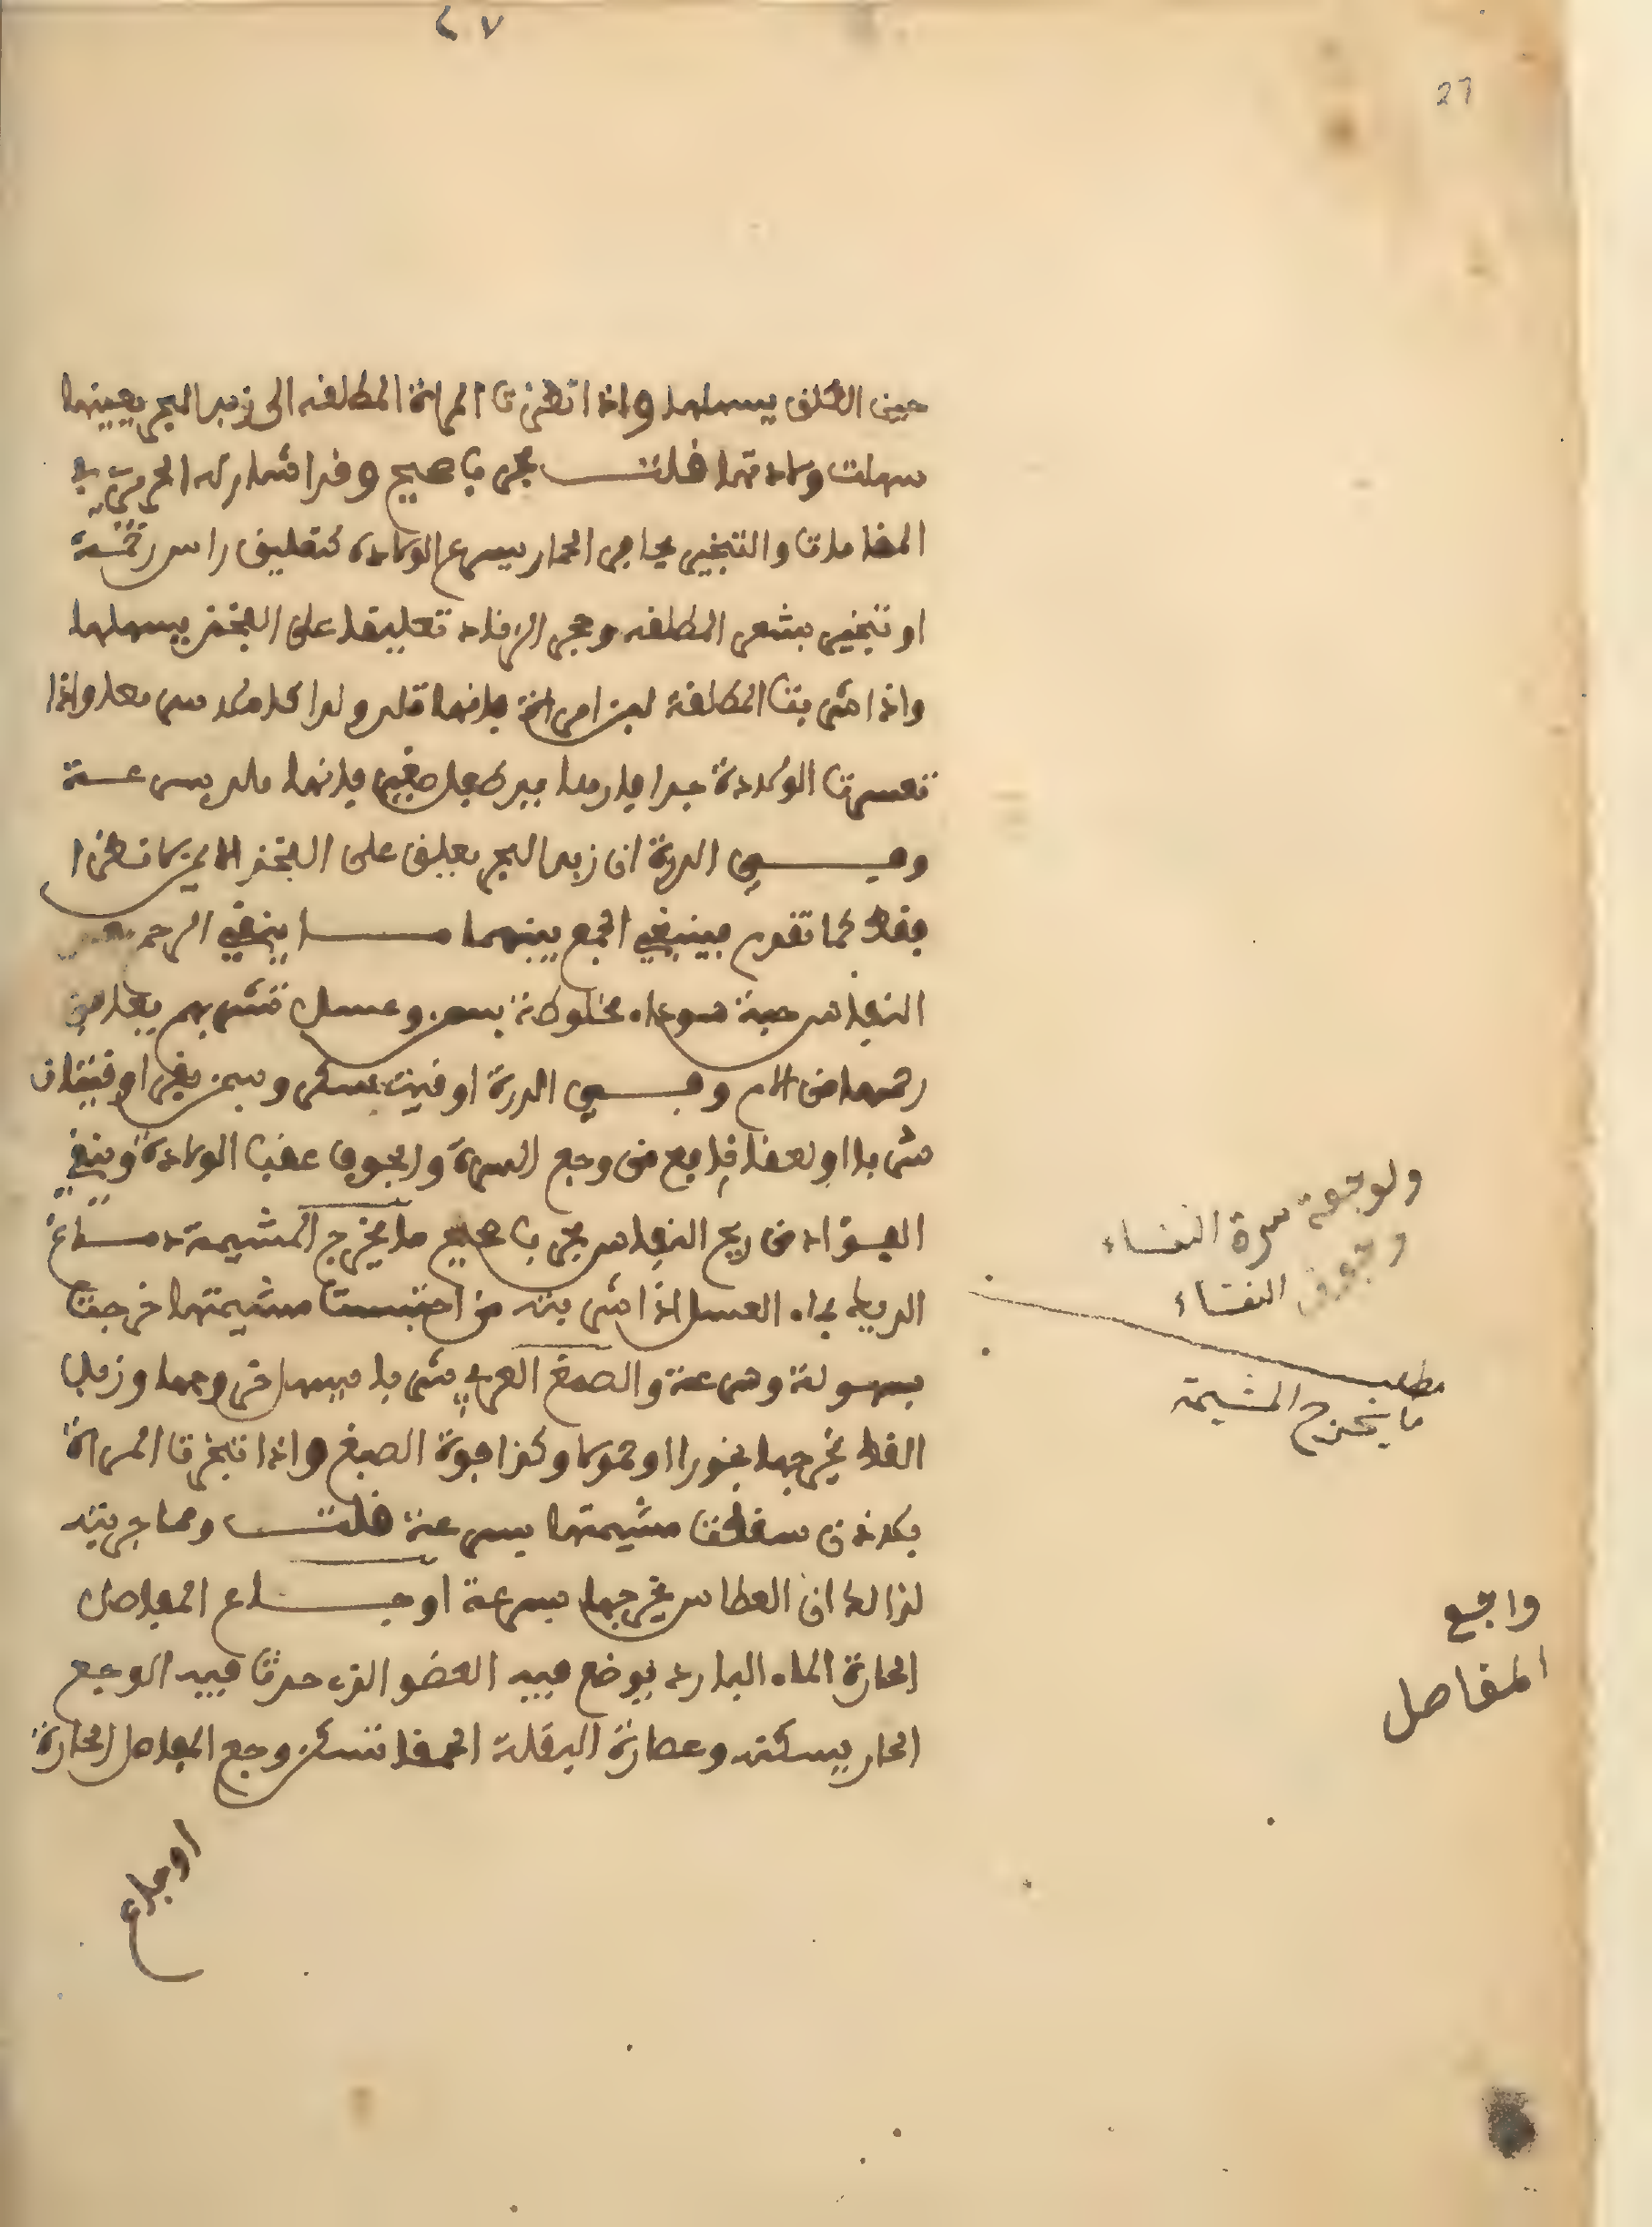 ٢٧
27
حين الطلق يسهلها واذا انظرت المراة المطلقه الى زبد البحر بعينها
سهلت ولادتها قلت مجرب صحيح وقد اشار له الحريري في
المقامات والتبخير بحافر الحمار يسرع الولادة كتعليق راس رخمة
او تبخير بشعر المطلقه وحجر الرقاد تعليقا على الفخذ يسهلها
واذا شربت المطلقة لبن امراة فانها تلد ولدا كاملا سريعا واذا
تعسرت الولادة جدا فارفعا بيد طفل صغير فانها تلد بسرعة
وفي الدرة ان زبد البحر يعلق على الفخذ الايمن لا نظرا
فقط كما تقدم فينبغي الجمع بينهما ما ينقي الرحم بعد
النفاس حبة سوداء مخلوطة بسمن وعسل تشربهم بعد
رحمها من الدم وفي الدرة اوقية سكر وسمن بقر اوقيتان
شربا او لعقا نافع من وجع السرة والجوف عقب الولادة وينقي
الفؤاد من ريح النفاس مجرب صحيح ما يخرج المشيمة دماغ
الديك بماء العسل اذا شربته من احتبست مشيمتها خرجت
بسهولة وسرعة والصمغ العربي شربا يسهل خروجها وزبل
القط يخرجها بخورا او حمولا وكذا فوة الصبغ واذا تبخرت المراة
بلاذن سقطت مشيمتها بسرعة قلت ومما جربته
لذالك ان العطاس يخرجها بسرعة اوجاع المفاصل
الحارة الماء البارد يوضع فيه العضو الذي حدث فيه الوجع
الحار يسكنه وعصارة البقلة الحمقا تسكن وجع المفاصل الحارة
اوجاع
ولوجعة سرة النفساء
وجوف النفساء
مطلب
ما يخرج المشيمة
واجع
المفاصل